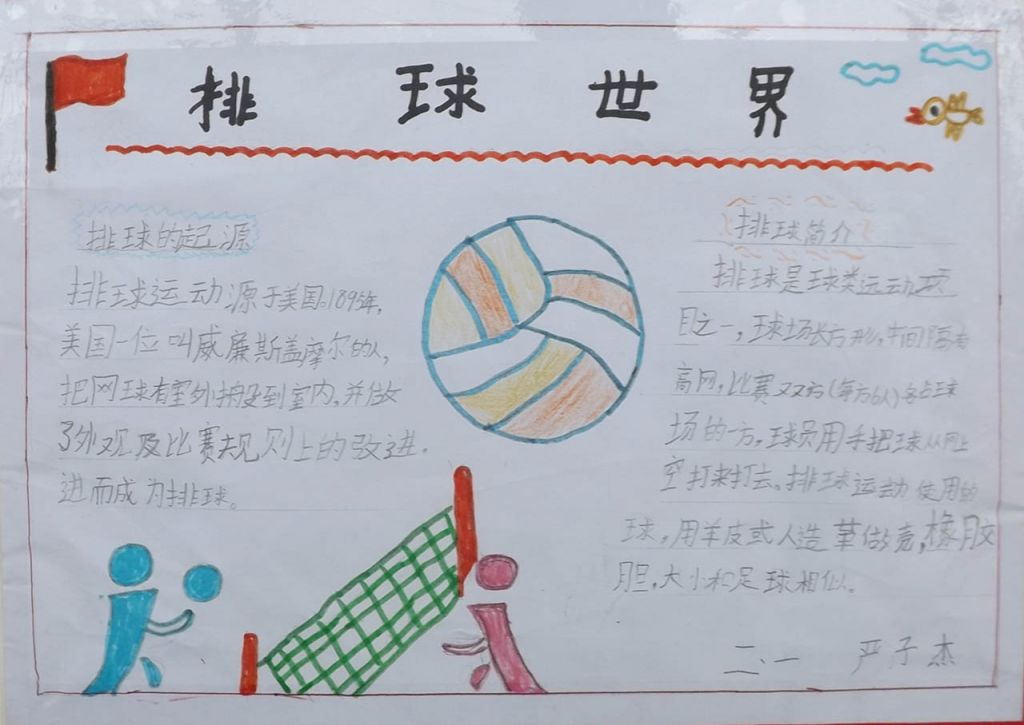 排球世界
排球的起源
排球运动源于美国。1895年,
美国一位叫威廉斯盖摩尔的人,
把网球有室外搬到室内,并做
了外观及比赛规则上的改进.
进而成为排球。
排球简介
排球是球类运动项
目之一,球场长方形,中间隔有
高网,比赛双方(每方6人)各占球
场的一方,球员用手把球从网上
空打来打去。排球运动使用的
球,用羊皮或人造革做壳,橡胶
胆,大小和足球相似。
二、一 严子杰